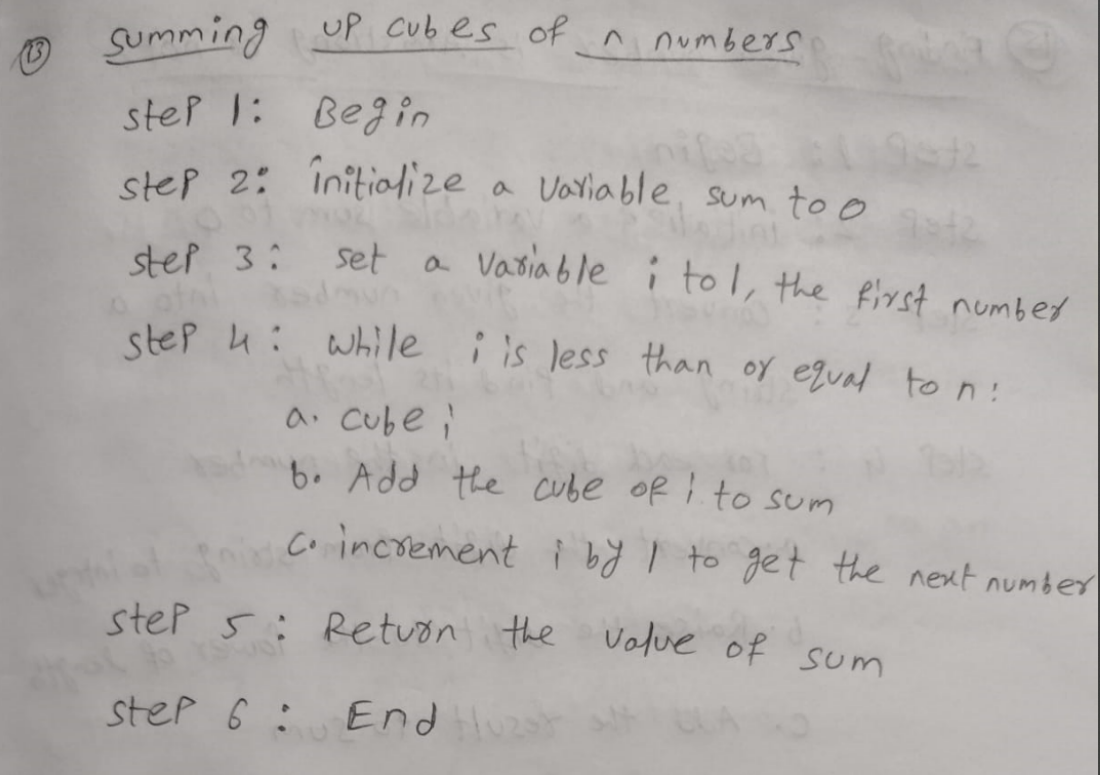 13 summing up cubes of n numbers
step 1: Begin
step 2: initialize a variable, sum to 0
step 3: set a variable i to 1, the first number
step 4: while i is less than or equal to n:
a. cube i
b. Add the cube of i to sum
c. increment i by 1 to get the next number
step 5: Return the value of sum
step 6: End